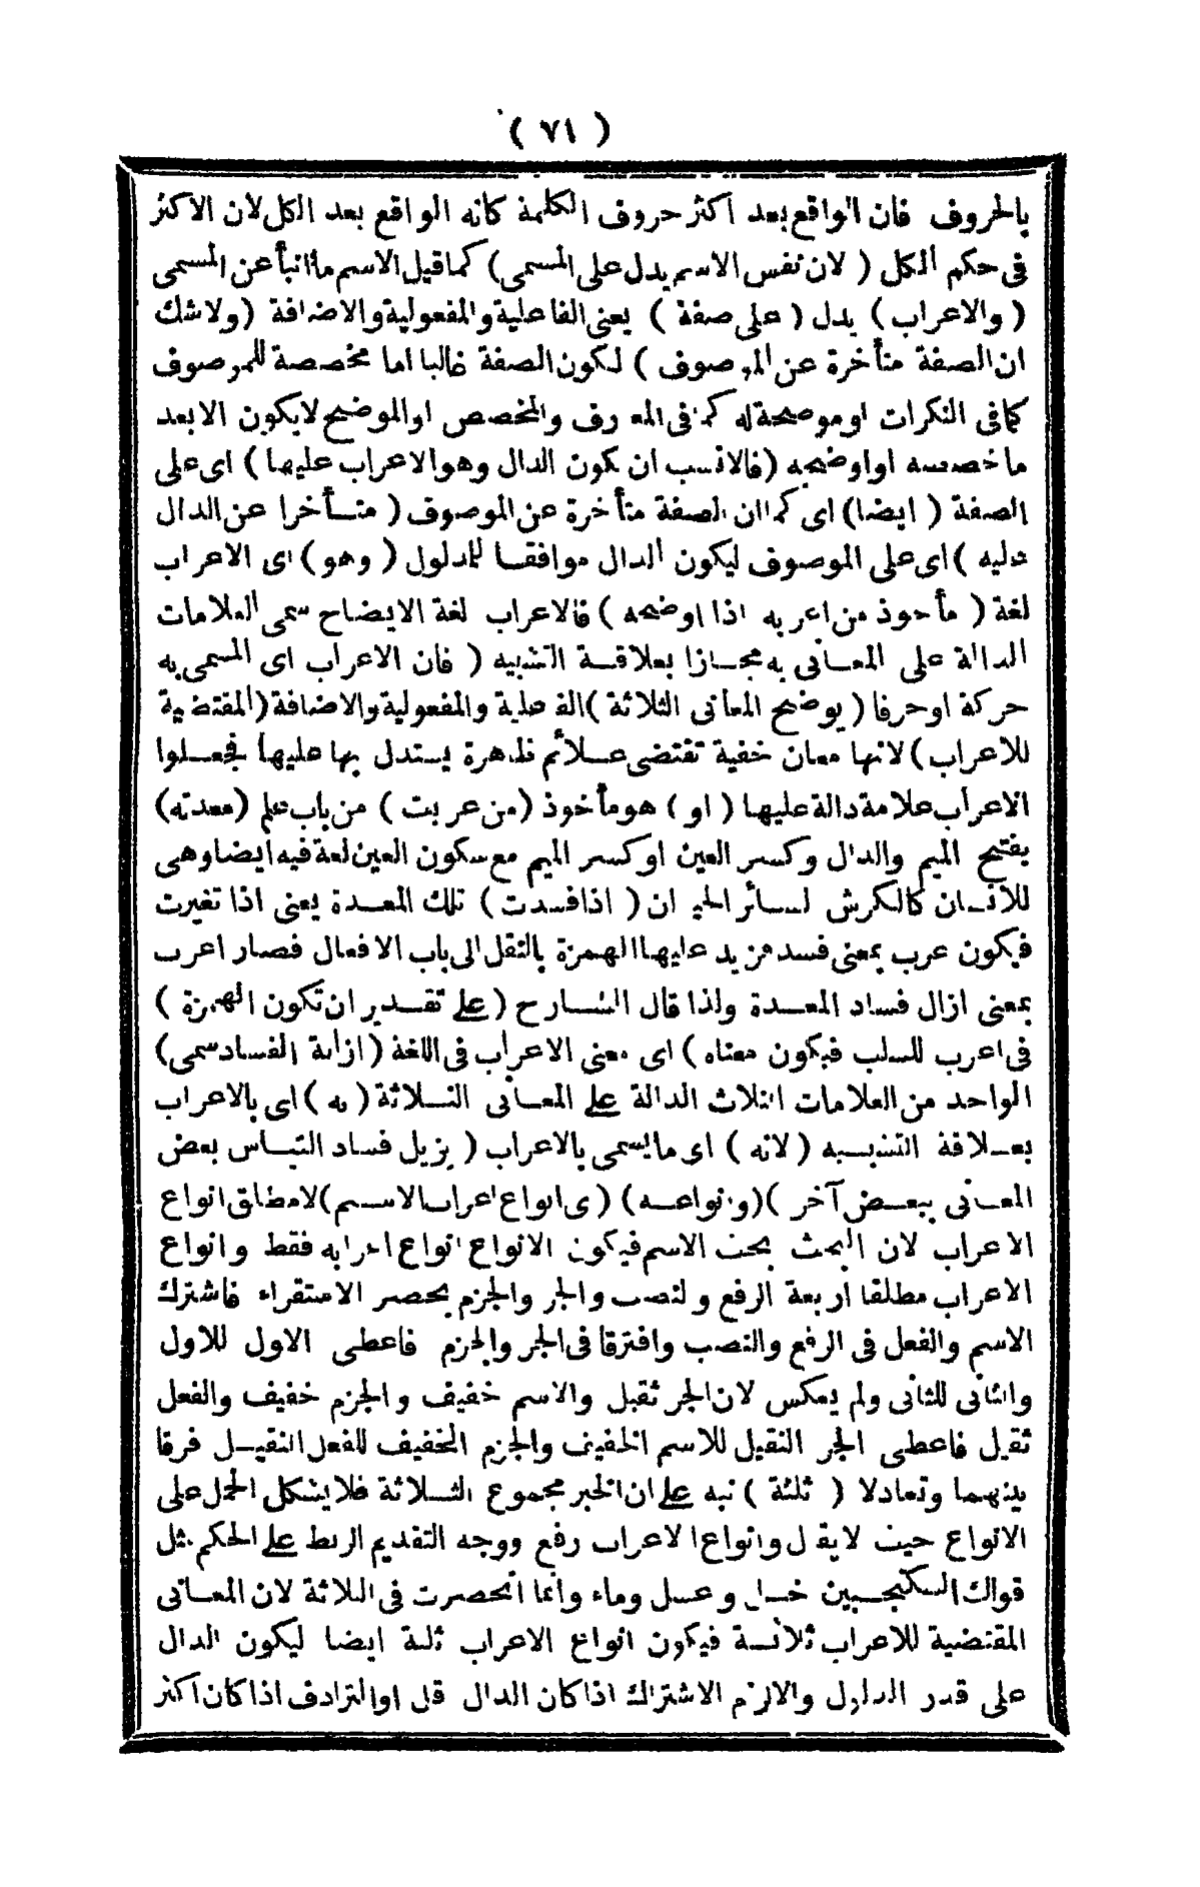 ( ٧١ )
بالحروف فان الواقع بعد اكثر حروف الكلمة كانه الواقع بعد الكل لان الاكثر
فى حكم الكل ( لان نفس الاسم يدل على المسمى ) كما قيل الاسم ما انبأ عن المسمى
( والاعراب ) يدل ( على صفة ) يعنى الفاعلية والمفعولية والاضافة ( ولا شك
ان الصفة متأخرة عن الموصوف ) لكون الصفة غالبا اما مخصصة للموصوف
كما فى النكرات او موضحة له كما فى المعارف والمخصص او الموضح لا يكون الا بعد
ما خصصه او اوضحه ( فالانسب ان يكون الدال وهو الاعراب عليها ) اى على
الصفة ( ايضا ) اى كما ان الصفة متأخرة عن الموصوف ( متأخرا عن الدال
عليه ) اى على الموصوف ليكون الدال موافقا للمدلول ( وهو ) اى الاعراب
لغة ( مأخوذ من اعربه اذا اوضحه ) فالاعراب لغة الايضاح سمى العلامات
الدالة على المعانى به مجازا بعلاقة التشبيه ( فان الاعراب اى المسمى به
حركة او حرفا ( يوضح المعانى الثلاثة ) الفاعلية والمفعولية والاضافة ( المقتضية
للاعراب ) لانها معان خفية تقتضى علائم ظاهرة يستدل بها عليها فجعلوا
الاعراب علامة دالة عليها ( او ) هو مأخوذ ( من عربت ) من باب علم ( معدته )
بفتح الميم والدال وكسر العين او كسر الميم مع سكون العين لغة فيه ايضا وهى
للانسان كالكرش لسائر الحيوان ( اذا فسدت ) تلك المعدة يعنى اذا تغيرت
فيكون عرب بمعنى فسد مزيد عليها الهمزة بالنقل الى باب الافعال فصار اعرب
بمعنى ازال فساد المعدة ولذا قال الشارح ( على تقدير ان تكون الهمزة )
فى اعرب للسلب فيكون معناه ) اى معنى الاعراب فى اللغة ( ازالة الفساد سمى )
الواحد من العلامات الثلاث الدالة على المعانى الثلاثة ( به ) اى بالاعراب
بعلاقة التشبيه ( لانه ) اى ما يسمى بالاعراب ( يزيل فساد التباس بعض
المعانى ببعض آخر ) ( وانواعه ) ( اى انواع اعراب الاسم ) لا مطلق انواع
الاعراب لان البحث بحث الاسم فيكون الانواع انواع اعرابه فقط وانواع
الاعراب مطلقا اربعة الرفع والنصب والجر والجزم بحصر الاستقراء فاشترك
الاسم والفعل فى الرفع والنصب وافترقا فى الجر والجزم فاعطى الاول للاول
والثانى للثانى ولم يعكس لان الجر ثقيل والاسم خفيف والجزم خفيف والفعل
ثقيل فاعطى الجر الثقيل للاسم الخفيف والجزم الخفيف للفعل الثقيل فرقا
بينهما وتعادلا ( ثلثة ) نبه على ان الخبر مجموع الثلاثة فلا يشكل الحمل على
الانواع حيث لا يقال وانواع الاعراب رفع ووجه التقديم الربط على الحكم مثل
قولك السكنجبين خل وعسل وماء وانما انحصرت فى الثلاثة لان المعانى
المقتضية للاعراب ثلاثة فيكون انواع الاعراب ثلثة ايضا ليكون الدال
على قدر المدلول والا لزم الاشتراك اذا كان الدال قل او الترادف اذا كان اكثر